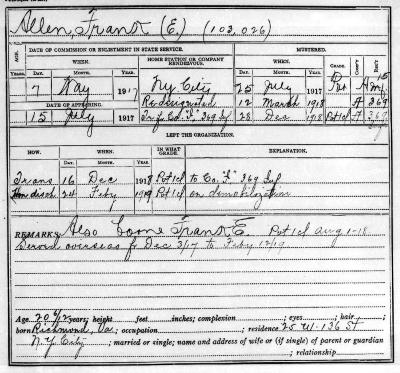 Allen, Frank (E.) (103,026)
AGE. DATE OF COMMISSION OR ENLISTMENT IN STATE SERVICE. HOME STATION OR COMPANY RENDEZVOUS. MUSTERED.
YEARS. WHEN. WHEN. GRADE. CO. REG'T.
DAY. MONTH. 191 DAY. MONTH. 191
7 May 1917 N.Y. City 25 July 1917 Pvt A 15
DATE OF APPEARING. Redesignated 12 March 1918 A 369
15 July 1917 Trsf Co. "F" 369 Inf 28 Dec 1918 Pvt 1cl A 369
LEFT THE ORGANIZATION.
HOW. WHEN. IN WHAT GRADE. EXPLANATION.
DAY. MONTH. 191
Trans 16 Dec 1918 Pvt 1cl to Co. "F" 369 Inf
Hon disch 24 Feby 1919 Pvt 1cl on demobilization
REMARKS: Also Frank E. Pvt 1cl Aug 1-18.
Served overseas fr Dec 3/17 to Feby 12/19
Age 20 years; height feet inches; complexion ; eyes ; hair ;
born Richmond, Va; occupation ; residence 25 W-136 St
N.Y. City ; married or single; name and address of wife or (if single) of parent or guardian
; relationship